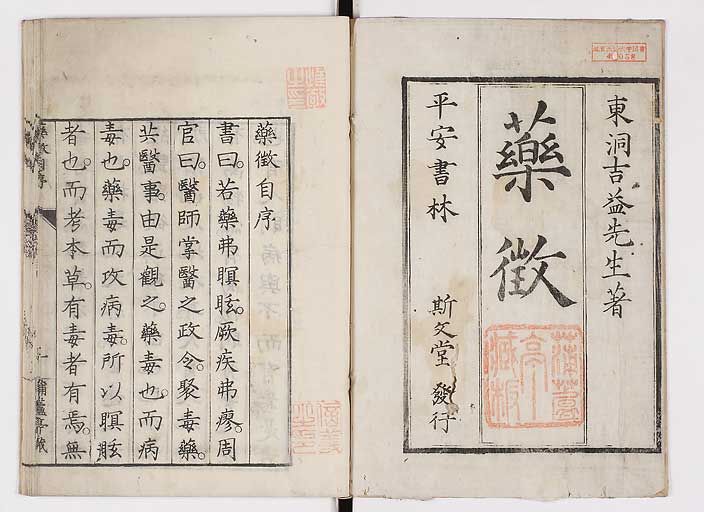 東洞吉益先生著
藥徴
平安書林
斯文堂 發行
藥徴自序
書曰。若藥弗瞑眩。厥疾弗瘳。周
官曰。醫師掌醫之政令。聚毒藥。
共醫事。由是觀之。藥毒也。而病
毒也。藥毒而攻病毒。所以瞑眩
者也。而考本草。有毒者有焉。無
藥徴自序